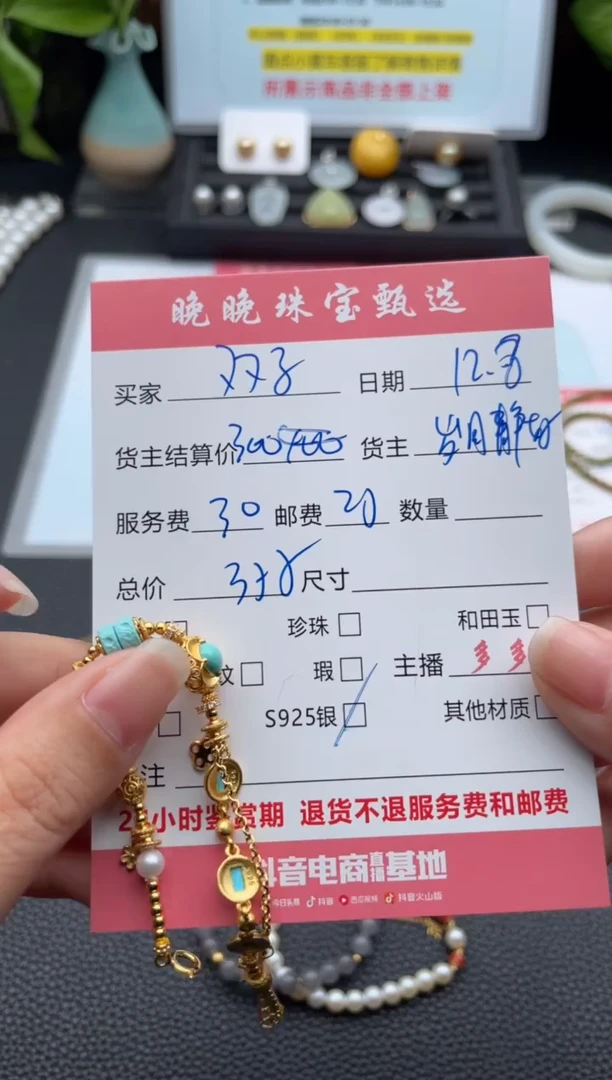 所展示商品非全部上架
晚晚珠宝甄选
买家 双子 日期 12.8
货主结算价 300 货主 岁月静好
服务费 30 邮费 20 数量
总价 350 尺寸
珍珠 和田玉
纹 瑕 主播 多多
S925银 其他材质
注
小时鉴赏期 退货不退服务费和邮费
抖音电商直播基地
今日头条 抖音 西瓜视频 抖音火山版